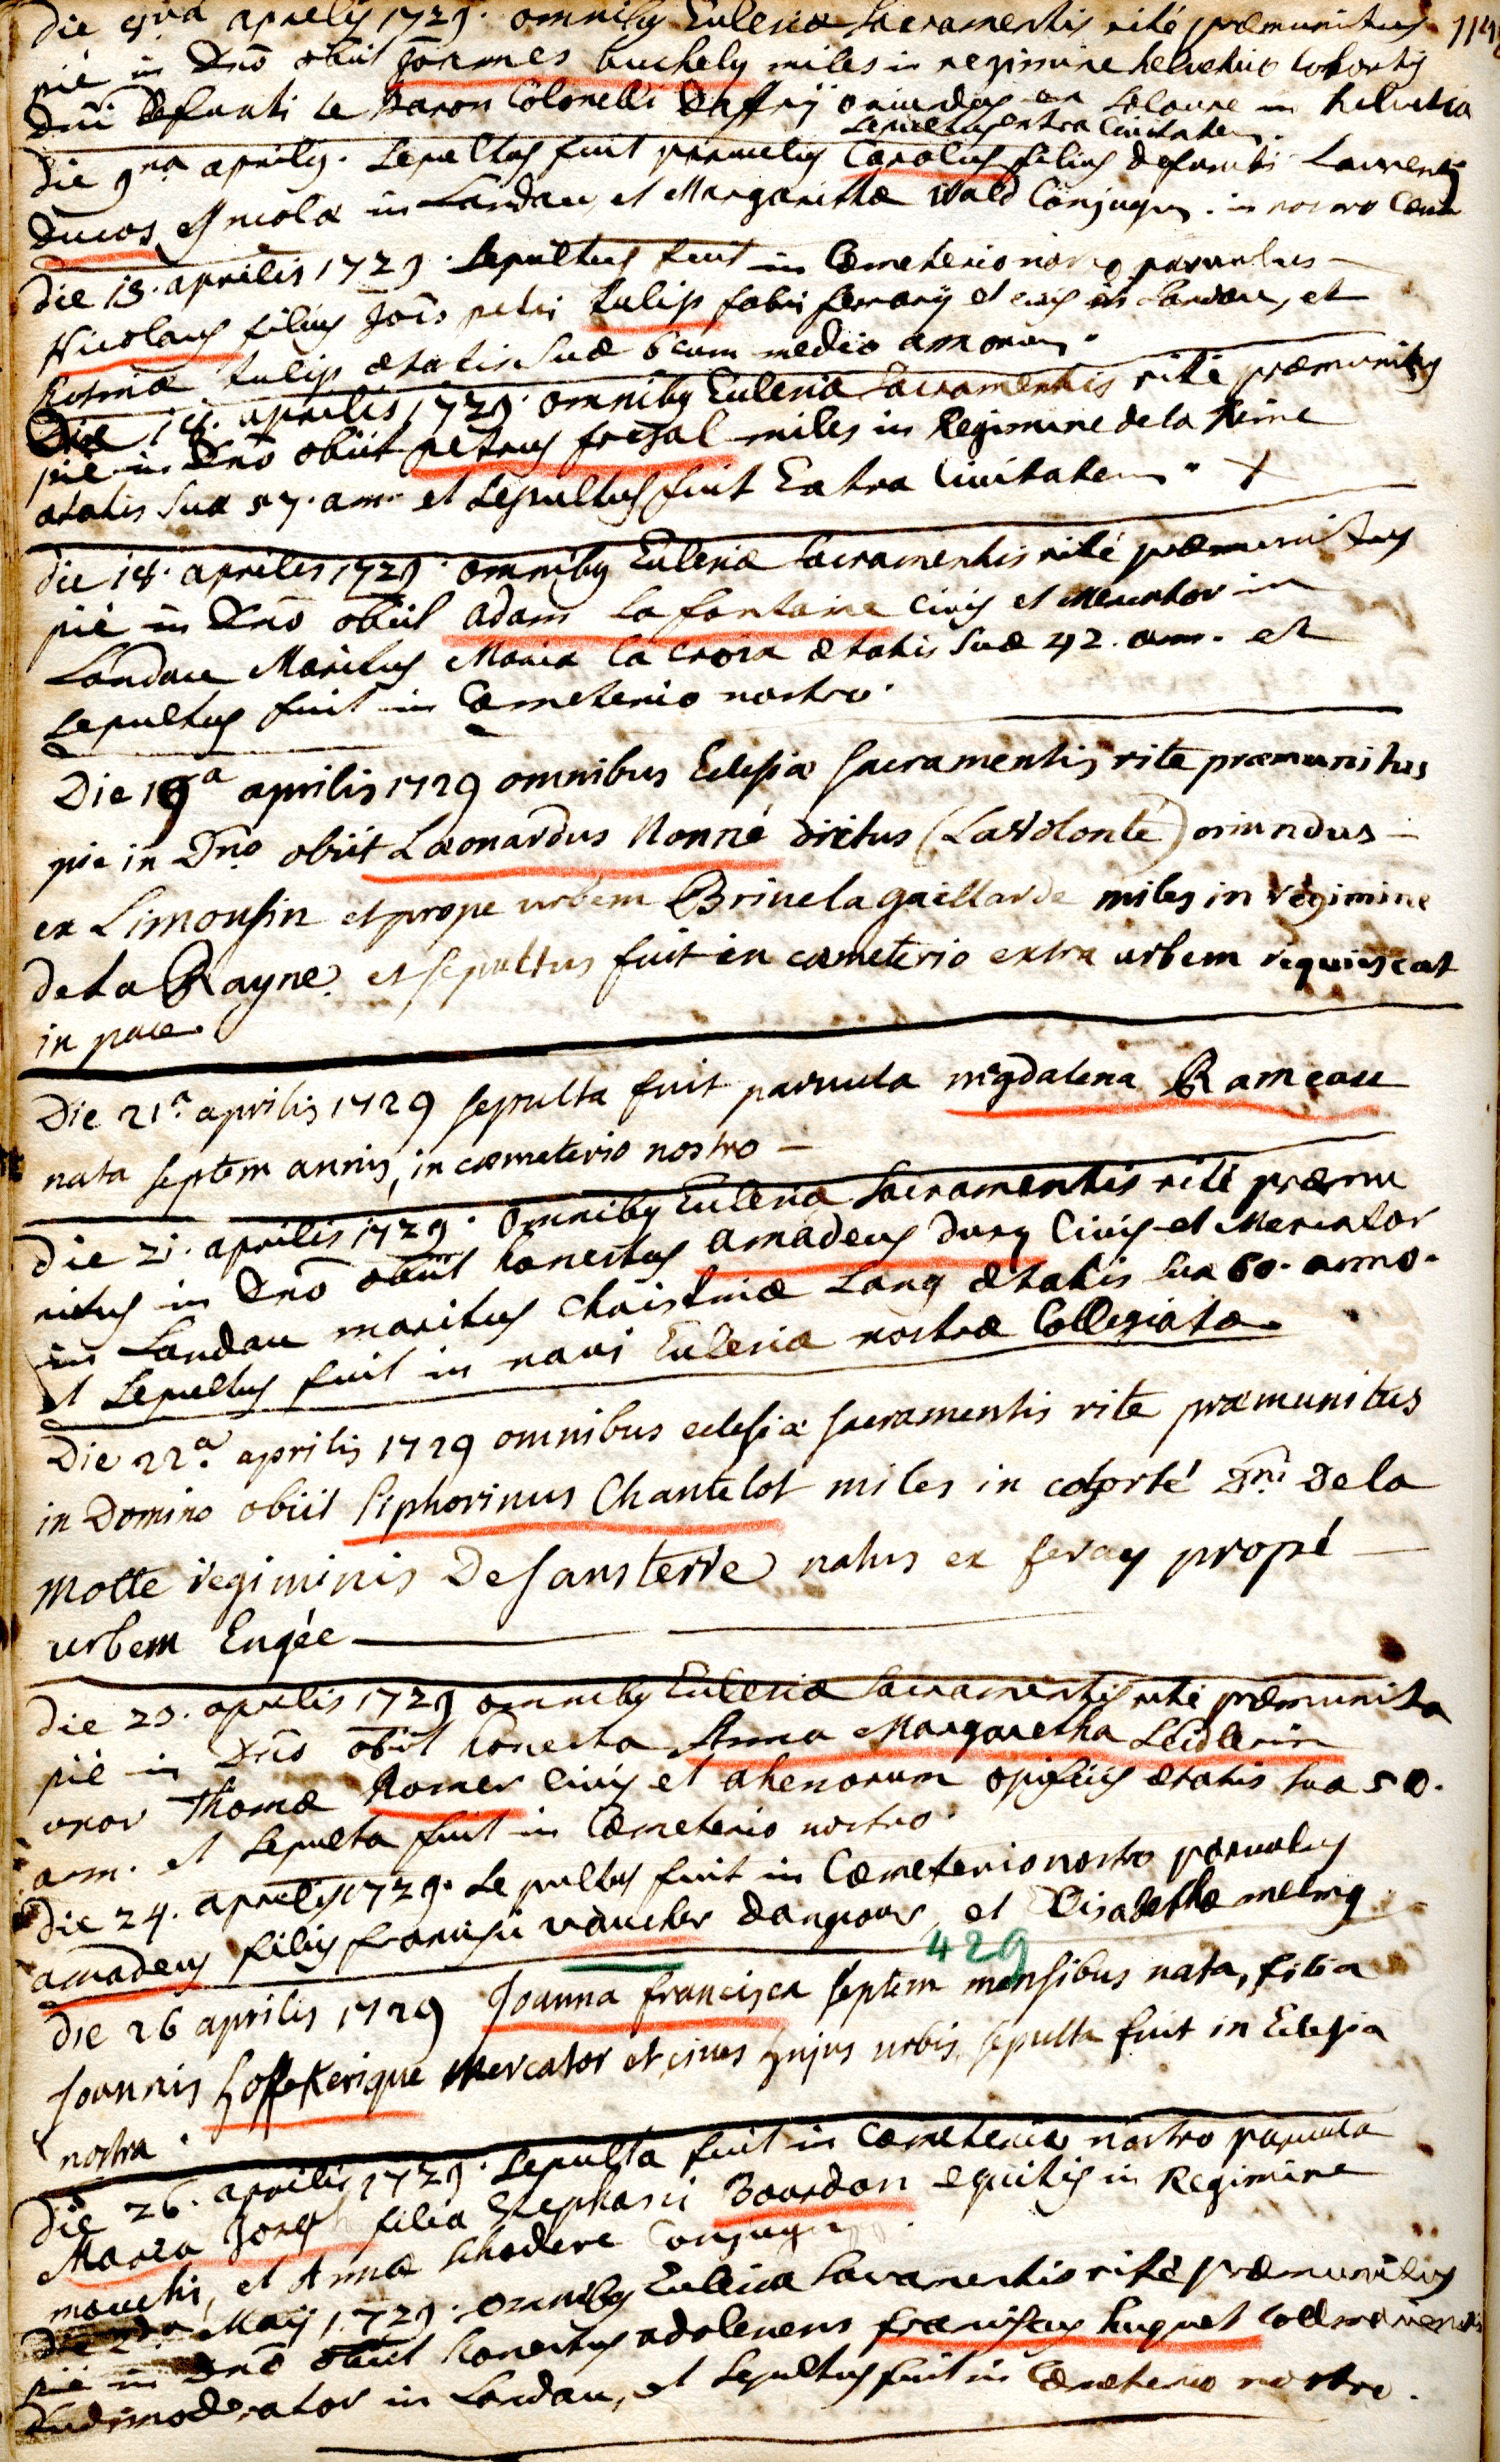 die 9na aprilis 1729. omnibus Ecclesiæ Sacramentis rité præmunitus
pié in Dno obiit Joannes buchely miles in regimine helvetico cohortis
Dni Defuncti le Baron Colonelli Daffrÿ oriundus ex Solaure in helvetia
sepultus extra civitatem.
die 9na aprilis. Sepultus fuit parvulus Carolus filius defuncti Laurentÿ
Ducos Incolæ in Landau, et Margarithæ Wald Conjugum. in nostro Cœm
die 13. aprilis 1729. Sepultus fuit in Cœmeterio nostro parvulus
Nicolaus filius Jois petri tulip fabri ferrarÿ et civis in Landau, et
tulip ætatis Suæ 6 cum medio annorum.
Die 14. aprilis 1729. omnibus Eccleriæ Sacramentis rité præmunitus
pié in Dno obiit petrus fretsal miles in Regimine de la Reine
ætatis Suæ 57. ann. et Sepultus fuit Extra Civitatem. X
die 14. aprilis 1729. omnibus Ecclesiæ Sacramentis rité præmunitus
pié in Dno obiit adam La fontaine Civis et Mercator in
Landau Maritus Mariæ la croix ætatis Suæ 42. ann. et
Sepultus fuit in Cœmeterio nostro.
Die 19a aprilis 1729 omnibus Eclesiæ Sacramentis rite præmunitus
pie in Dno obiit Læonardus Nonné dictus (La Volonté) oriundus
ex Limousin et prope urbem Brive la gaillarde miles in regimine
de La Rayne et sepultus fuit in cœmeterio extra urbem requiescat
in pace.
Die 21a aprilis 1729 sepulta fuit parvula magdalena Rameau
nata septem annis, in cœmeterio nostro
die 21. aprilis 1729. omnibus Ecclesiæ Sacramentis rité præmu
nitus in Dno obiit honestus amadeus dury Civis et Mercator
in Landau maritus Christinæ Lang ætatis Suæ 60. anno.
et Sepultus fuit in navi Ecclesiæ nostræ Collegiatæ.
Die 22a aprilis 1729 omnibus eclesiæ sacramentis rite præmunitus
in Domino obiit Siphorinus Chantelot miles in cohorté Dni De la
Motte regiminis De Sansterre natus ex feray propé
urbem Engée
die 23. aprilis 1729 omnibus Ecclesiæ Sacramentis rité præmunita
pié in Dno obiit honesta Anna Margaretha Leidlerin
uxor Thomæ Romer Civis et ahenorum opificis ætatis suæ 50.
ann. et Sepulta fuit in Cœmeterio nostro.
die 24. aprilis 1729. Sepultus fuit in Cœmeterio nostro parvulus
amadeus filius francisci vaucher dangvour, et Elisabethæ melmg
429
Die 26 aprilis 1729 Joanna francisca septem mensibus nata, filia
Joannis hoffekerique Mercator et cives hujus urbis, sepulta fuit in Eclesia
nostra.
die 26. aprilis 1729. Sepulta fuit in Cœmeterio nostro parvula
Maria Joseph filia Stephani Bourdon equitis in Regimine
mouchi, et Annæ schodere Conjugum.
die 2da Maÿ 1729. omnibus Ecclesiæ Sacramentis rité præmunitus
pié in Dno obiit honestus adolescens franciscus huguet
Ludimoderator in Landau, et Sepultus fuit in Cœmeterio nostro.